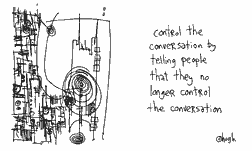 control the
conversation by
telling people
that they no
longer control
the conversation
@hugh